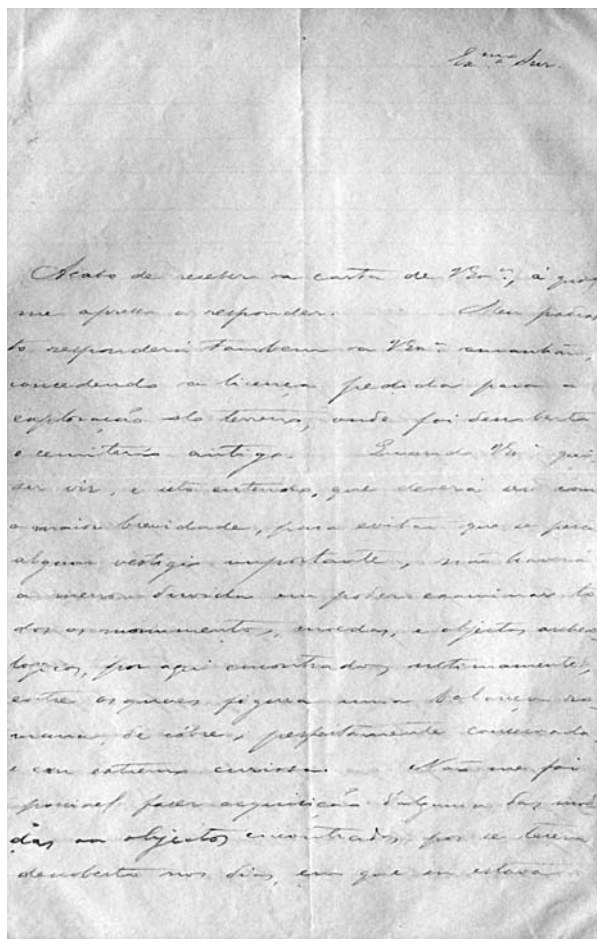 Ex.ma Snr.
Acabo de receber a carta de V Ex.cia, á qual
me apresso a responder. Meu padras
to responderá tambem a V Ex.cia amanhãa,
concedendo a licença pedida para a
exploração do terreno, onde foi descoberto
o cemiterio antigo. Quando V Ex.cia qui
ser vir, e isto entendo, que deverá ser com
a maior brevidade, para evitar que se perca
algum vestigio importante, não haverá
a menor duvida em poder examinar to
dos os monumentos, moedas, e objectos archeo
logicos, por aqui encontrados ultimamente,
entre os quaes figura uma balança ro
mana, de cóbre, perfeitamente conservada,
e com extremo curiosa. Não me foi
possivel fazer acquisição d'alguma das moe
das ou objectos encontrados, por se terem
descoberto nos dias, em que eu estava